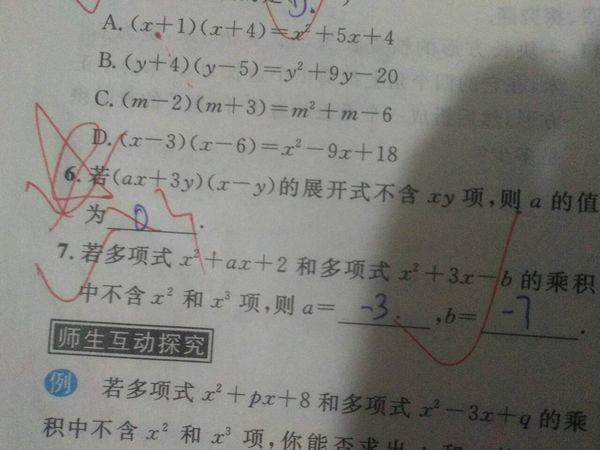 A. (x+1)(x+4)=x²+5x+4
B. (y+4)(y-5)=y²+9y-20
C. (m-2)(m+3)=m²+m-6
D. (x-3)(x-6)=x²-9x+18
6. 若(ax+3y)(x-y)的展开式不含 xy 项,则 a 的值
为 0 .
7. 若多项式 x²+ax+2 和多项式 x²+3x-b 的乘积
中不含 x² 和 x³ 项,则 a= -3 ,b= -7 .
师生互动探究
例 若多项式 x²+px+8 和多项式 x²-3x+q 的乘
积中不含 x² 和 x³ 项,你能否求出